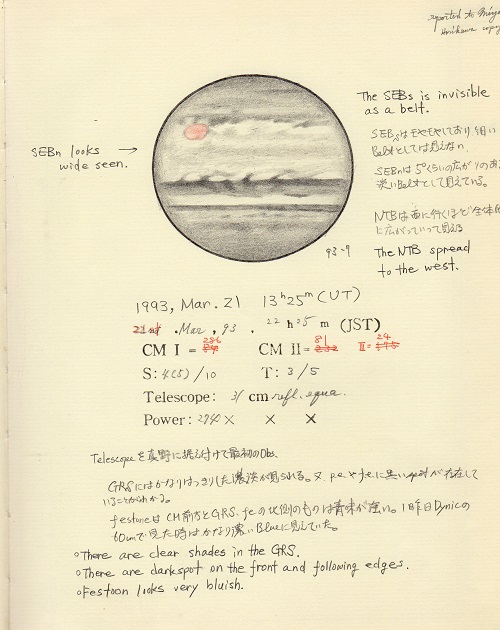 reported to Miya
Horikawa copy
The SEBs is invisible
as a belt.
SEBsはモヤモヤしており、細い
Beltとしては見えない。
SEBnは5°くらいの広がりのある
淡いBeltとして見えている。
SEBn looks →
wide seen.
NTBは西に行くほど全体的
に広がっていって見える
93-9
The NTB spread
to the west.
1993, Mar. 21 13h25m (UT)
21st. Mar, 93. 22h25m (JST)
CM I = 286 CM II = 81 III = 24
S: 4(5)/10 T: 3/5
Telescope: 31 cm refl. equa.
Power: 290× × ×
Telescopeを真野に据え付けて最初のObs.
GRSにはかなりはっきりした濃淡が見られる。又、p.eやf.eに黒いspotが存在して
いることがわかる。
festoneはCM前方とGRS, f.eの北側のものは青味が強い。1昨日Dynicの
60cmで見た時はかなり濃いBlueに見えていた。
○There are clear shades in the GRS.
○There are darkspot on the front and following edges.
○Festoon looks very bluish.